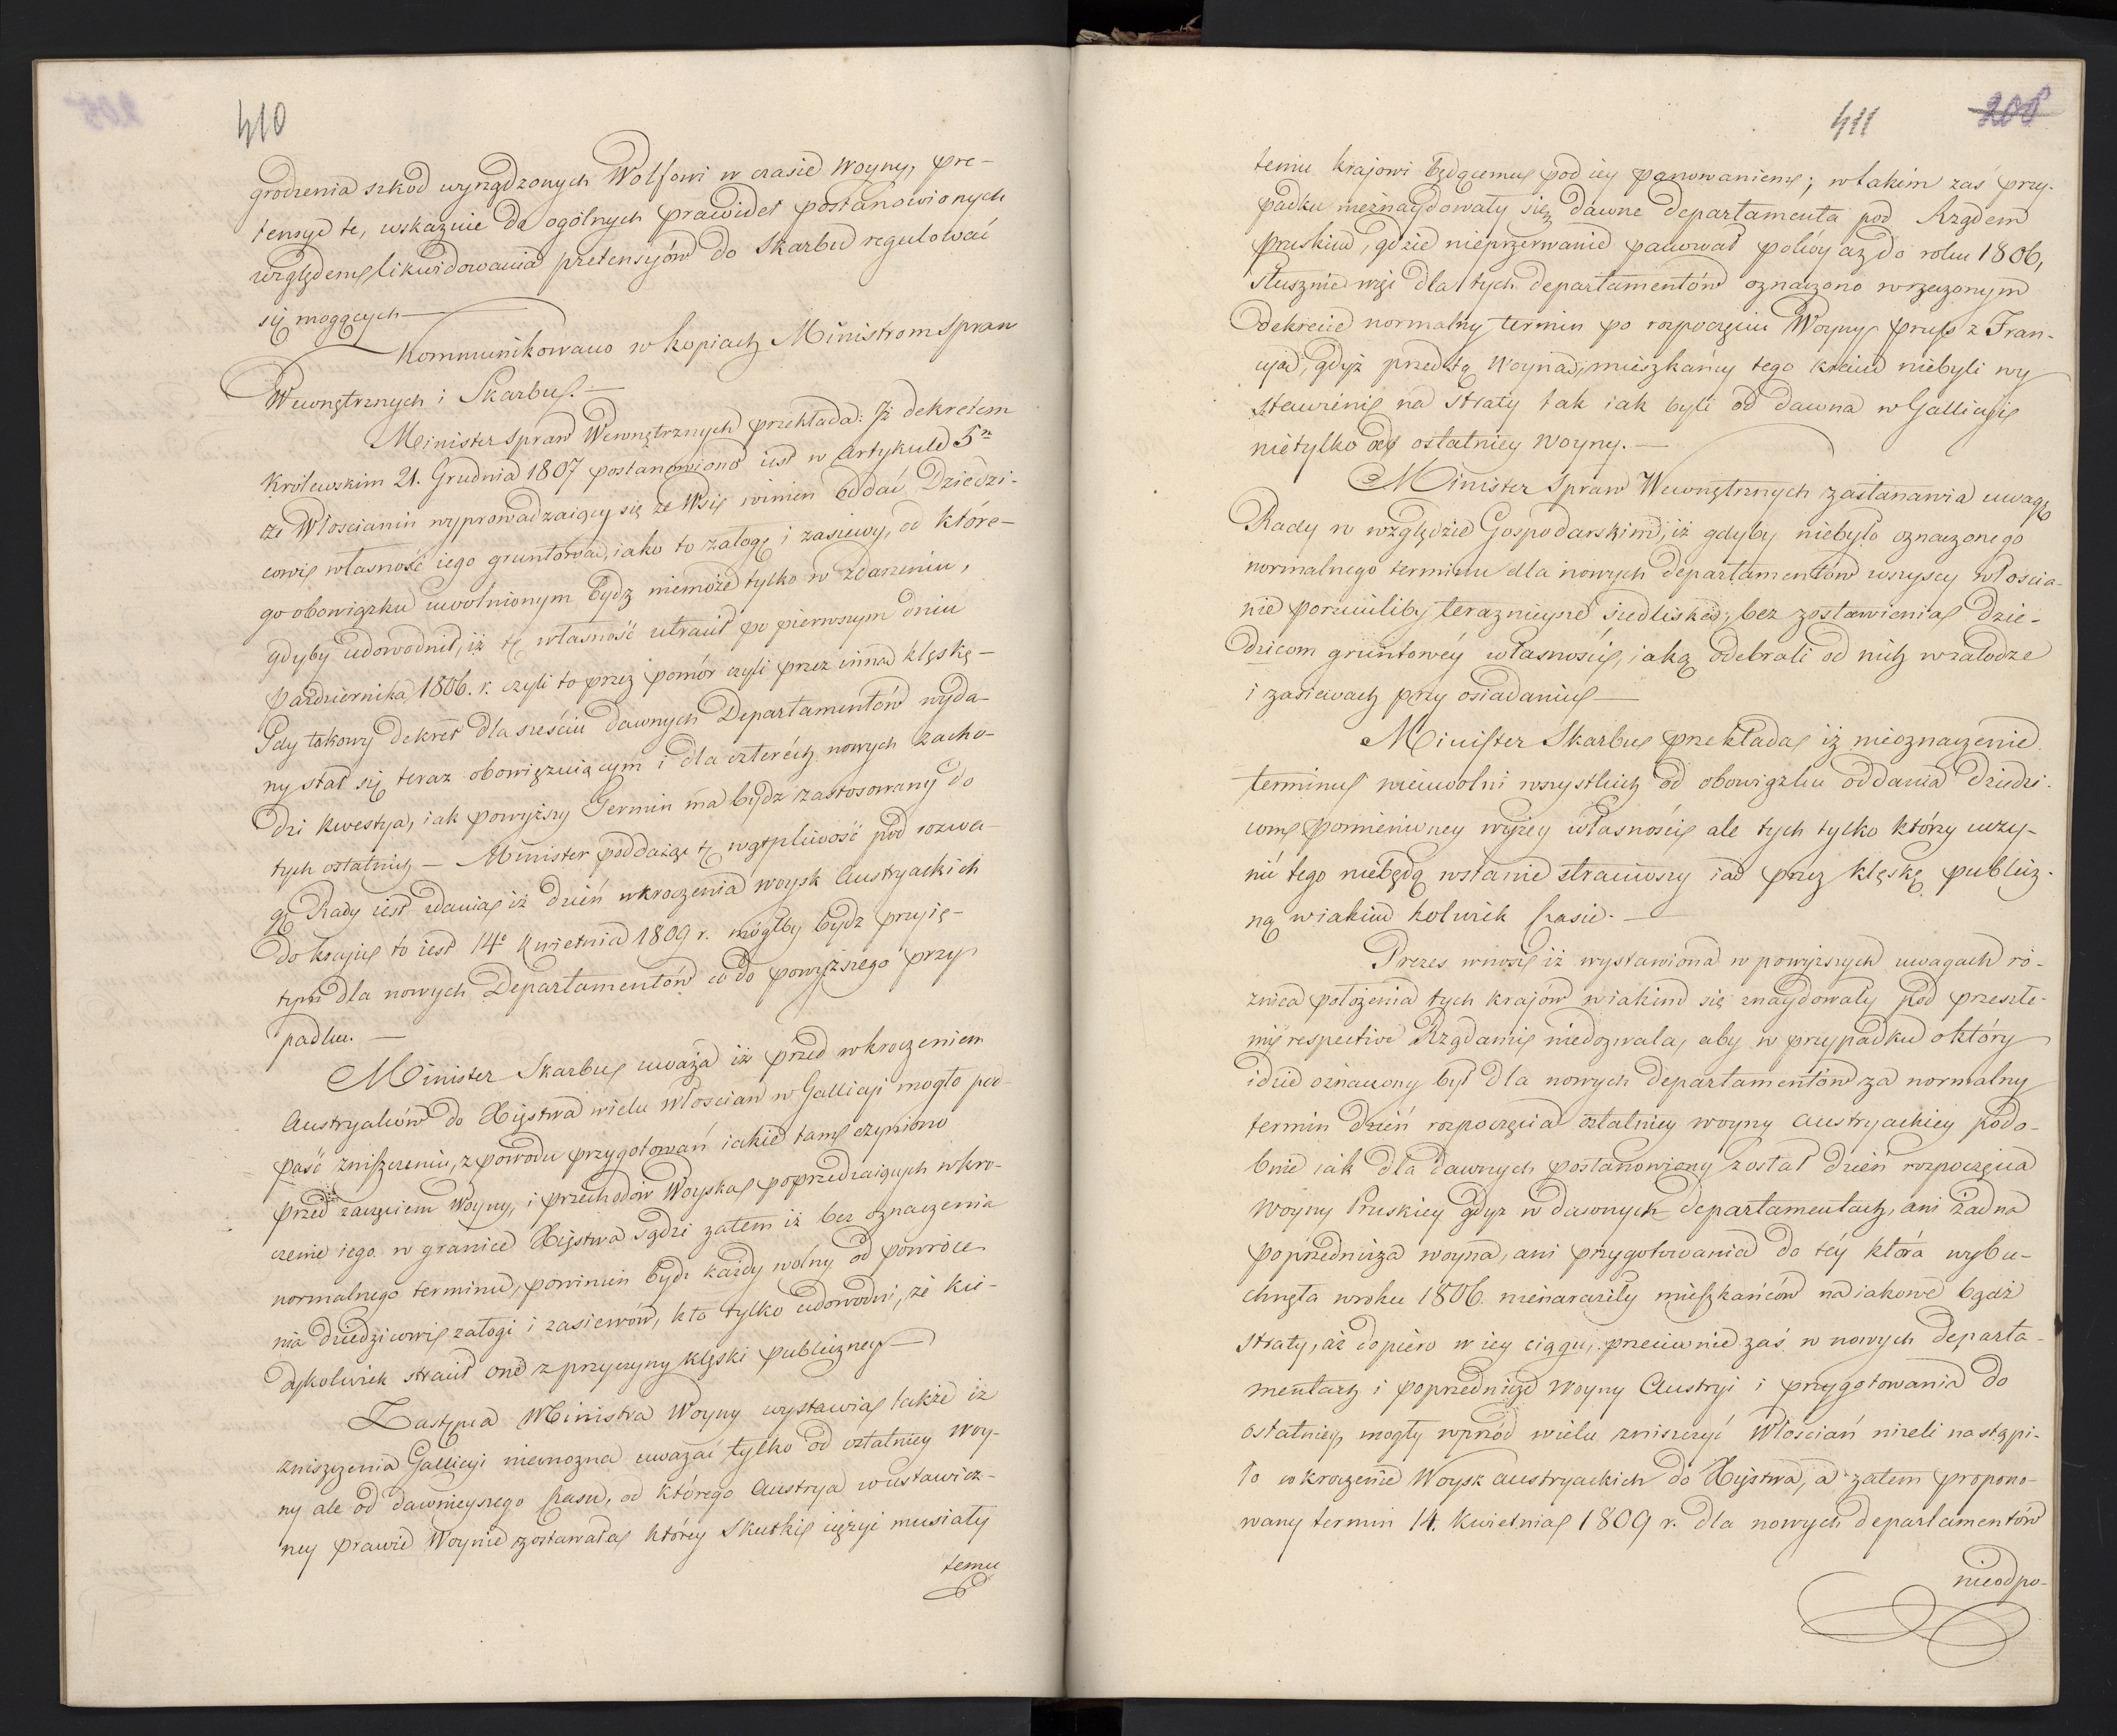 410
grodzenia szkod wyrządzonych Wolfowi w czasie Woyny, pre-
tensye te, wskazuie do ogólnych prawideł postanowionych
względem likwidowania pretensyiów do Skarbu regulować
się mogących —
Kommunikowano w kopiach Ministrom Spraw
Wewnętrznych i Skarbu. —
Minister Spraw Wewnętrznych przekłada: Iż dekretem
Królewskim 21. Grudnia 1807 postanowiono iest w Artykule 5m
że Włoscianin wyprowadzaiący się ze Wsi winien oddać Dziedzi-
cowi własność iego gruntową, iako to załogę i zasiewy, od które-
go obowiązku uwolnionym bydz niemoże tylko w zdarzeniu,
gdyby udowodnił, iż tę własność utracił po pierwszym dniu
Października 1806. r. czyli to przez pomór czyli przez inną klęskę —
Gdy takowy dekret dla sześciu dawnych Departamentów wyda-
ny stał się teraz obowięzuiącym i dla czterech nowych zacho-
dzi kwestya, iak powyższy Termin ma bydz zastosowany do
tych ostatnich — Minister poddaiąc tę wątpliwość pod rozwa-
gę Rady iest zdania iż dzień wkroczenia woysk Austryackich
do kraiu to iest 14o Kwietnia 1809 r. mógłby bydz przyię-
tym dla nowych Departamentów co do powyższego przy-
padku. —
Minister Skarbu uważa iż przed wkroczeniem
Austryaków do Xięstwa wielu Włoscian w Gallicyi mogło pod-
paść zniszczeniu, z powodu przygotowań iakie tam czyniono
przed zaczęciem Woyny, i przechodów Woyska poprzedzaiących wkro-
czenie iego w granice Xięstwa sądzi zatem iż bez oznaczenia
normalnego terminu, powinien bydz każdy wolny od powróce-
nia dziedzicowi załogi i zasiewów, kto tylko udowodni, że kie-
dykolwiek stracił one z przyczyny klęski publiczney —
Zastępca Ministra Woyny wystawia także iż
zniszczenia Gallicyi niemożna uważać tylko od ostatniey Woy-
ny ale od dawnieyszego czasu, od którego Austrya w ustawicz-
ney prawie Woynie zostawała, którey Skutki ciężyć musiały
temu
411
208
temu krajowi będącemu pod iey panowaniem; w takim zaś przy-
padku nieznaydowały się dawne departamenta pod Rządem
pruskim, gdzie nieprzerwanie panował pokóy aż do roku 1806,
słusznie więc dla tych departamentów oznaczono w rzeczonym
dekrecie normalny termin po rozpoczęciu Woyny prusk: z Fran-
cyą, gdyż przed tą Woyną, mieszkańcy tego kraiu niebyli wy-
stawieni na straty tak iak byli od dawna w Gallicyi
nietylko od ostatniey Woyny. —
Minister Spraw Wewnętrznych zastanawia uwagę
Rady w względzie Gospodarskim, iż gdyby niebyło oznaczonego
normalnego terminu dla nowych departamentów wszyscy włościa-
nie porzuciliby teraznieysze siedliska, bez zostawienia dzie-
dzicom gruntowéy własności, iaką odebrali od nich w załodze
i zasiewach przy osiadaniu —
Minister Skarbu przekłada iż nieoznaczenie
terminu nieuwolni wszystkich od obowiązku oddania dziedzi-
com pomienioney wyżey własności ale tych tylko którzy uczy-
nić tego niebędą wstanie straciwszy ią przez klęskę publicz-
ną w iakim kolwiek czasie. —
Prezes wnosi iż wystawiona w powyższych uwagach ró-
żnica położenia tych krajów w iakim się znaydowały pod przeszłe-
mi respective Rządami niedozwala, aby w przypadku o który
idzie oznaczony był dla nowych departamentów za normalny
termin dzień rozpoczęcia ostatniey woyny Austryackiey podo-
bnie iak dla dawnych postanowiony został dzień rozpoczęcia
Woyny Pruskiey gdyż w dawnych departamentach, ani żadna
poprzednicza woyna, ani przygotowania do téy która wybu-
chnęła w roku 1806. nienaraziły mieszkańców na iakowe bądź
straty, aż dopiero w iey ciągu, przeciwnie zaś w nowych departa-
mentach i poprzednicze woyny Austryi i przygotowania do
ostatniey, mogły wprzód wielu zniszczyć Włoscian nizeli nastąpi-
ło wkroczenie Woysk austryackich do Xięstwa, a zatem propono-
wany termin 14. Kwietnia 1809 r. dla nowych departamentów
nieodpo-